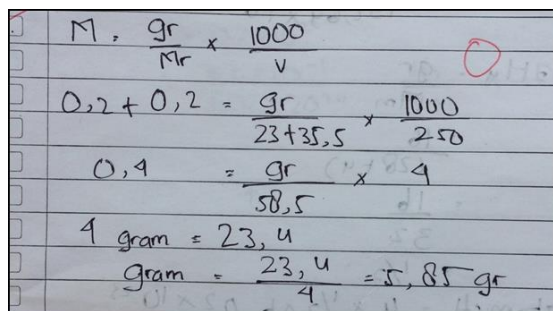 M = gr/Mr × 1000/v
0,2 + 0,2 = gr/23+35,5 × 1000/250
0,4 = gr/58,5 × 4
4 gram = 23,4
gram = 23,4/4 = 5,85 gr